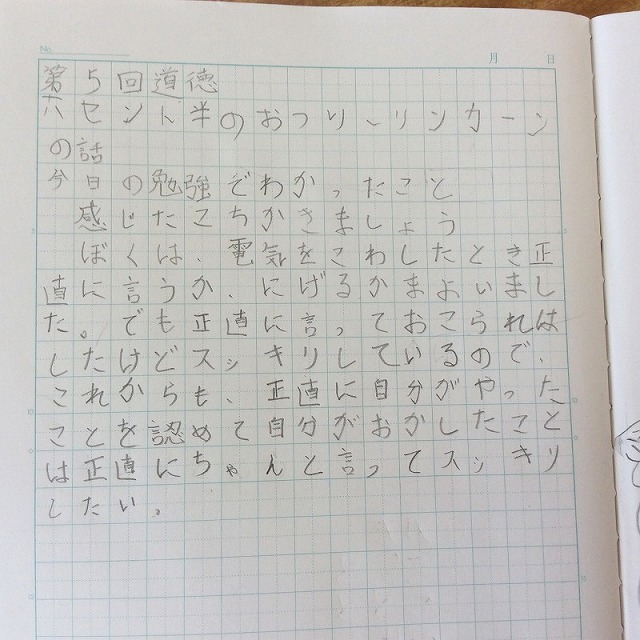 No.
月 日
第5回道徳
六セント半のおつり〜リンカーン
の話
今日の勉強でわかったこと
感じたこちかきましょう
ぼくは、電気をこわしたとき正
直に言うか、にげるかまよいまし
た。でも正直に言っておこられは
したけどスッキリしているので、
これからも、正直に自分がやった
ことを認めて自分がおかしたこと
は正直にちゃんと言ってスッキリ
したい。